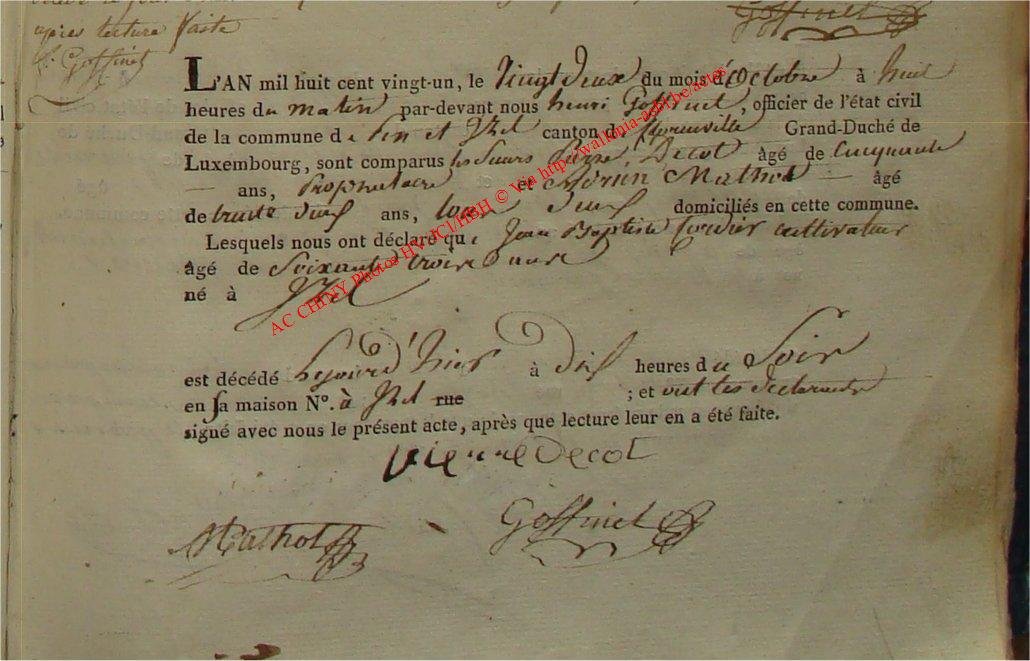 après lecture faite
Goffinet
Goffinet
L'AN mil huit cent vingt-un, le Vingt deux du mois d'Octobre à huit
heures du matin par-devant nous henri Goffinet, officier de l'état civil
de la commune de pin et Izel canton de florenville Grand-Duché de
Luxembourg, sont comparus les Sieurs Pierre Decot âgé de Cinquante
— ans, Proprietaire et Mathot — âgé
de trente ans, tous deux domiciliés en cette commune.
Lesquels nous ont déclaré que Jean Baptiste cultivateur
âgé de Soixante trois ans
né à Izel
est décédé Le jour d'hier à dix heures du Soir
en sa maison N°. à Izel rue ; et ont les declarants
signé avec nous le présent acte, après que lecture leur en a été faite.
Pierre Decot
Mathot
Goffinet
AC CHINY Photos HV-JCl/HBH © Via http://wallonia-asbl.be/actes